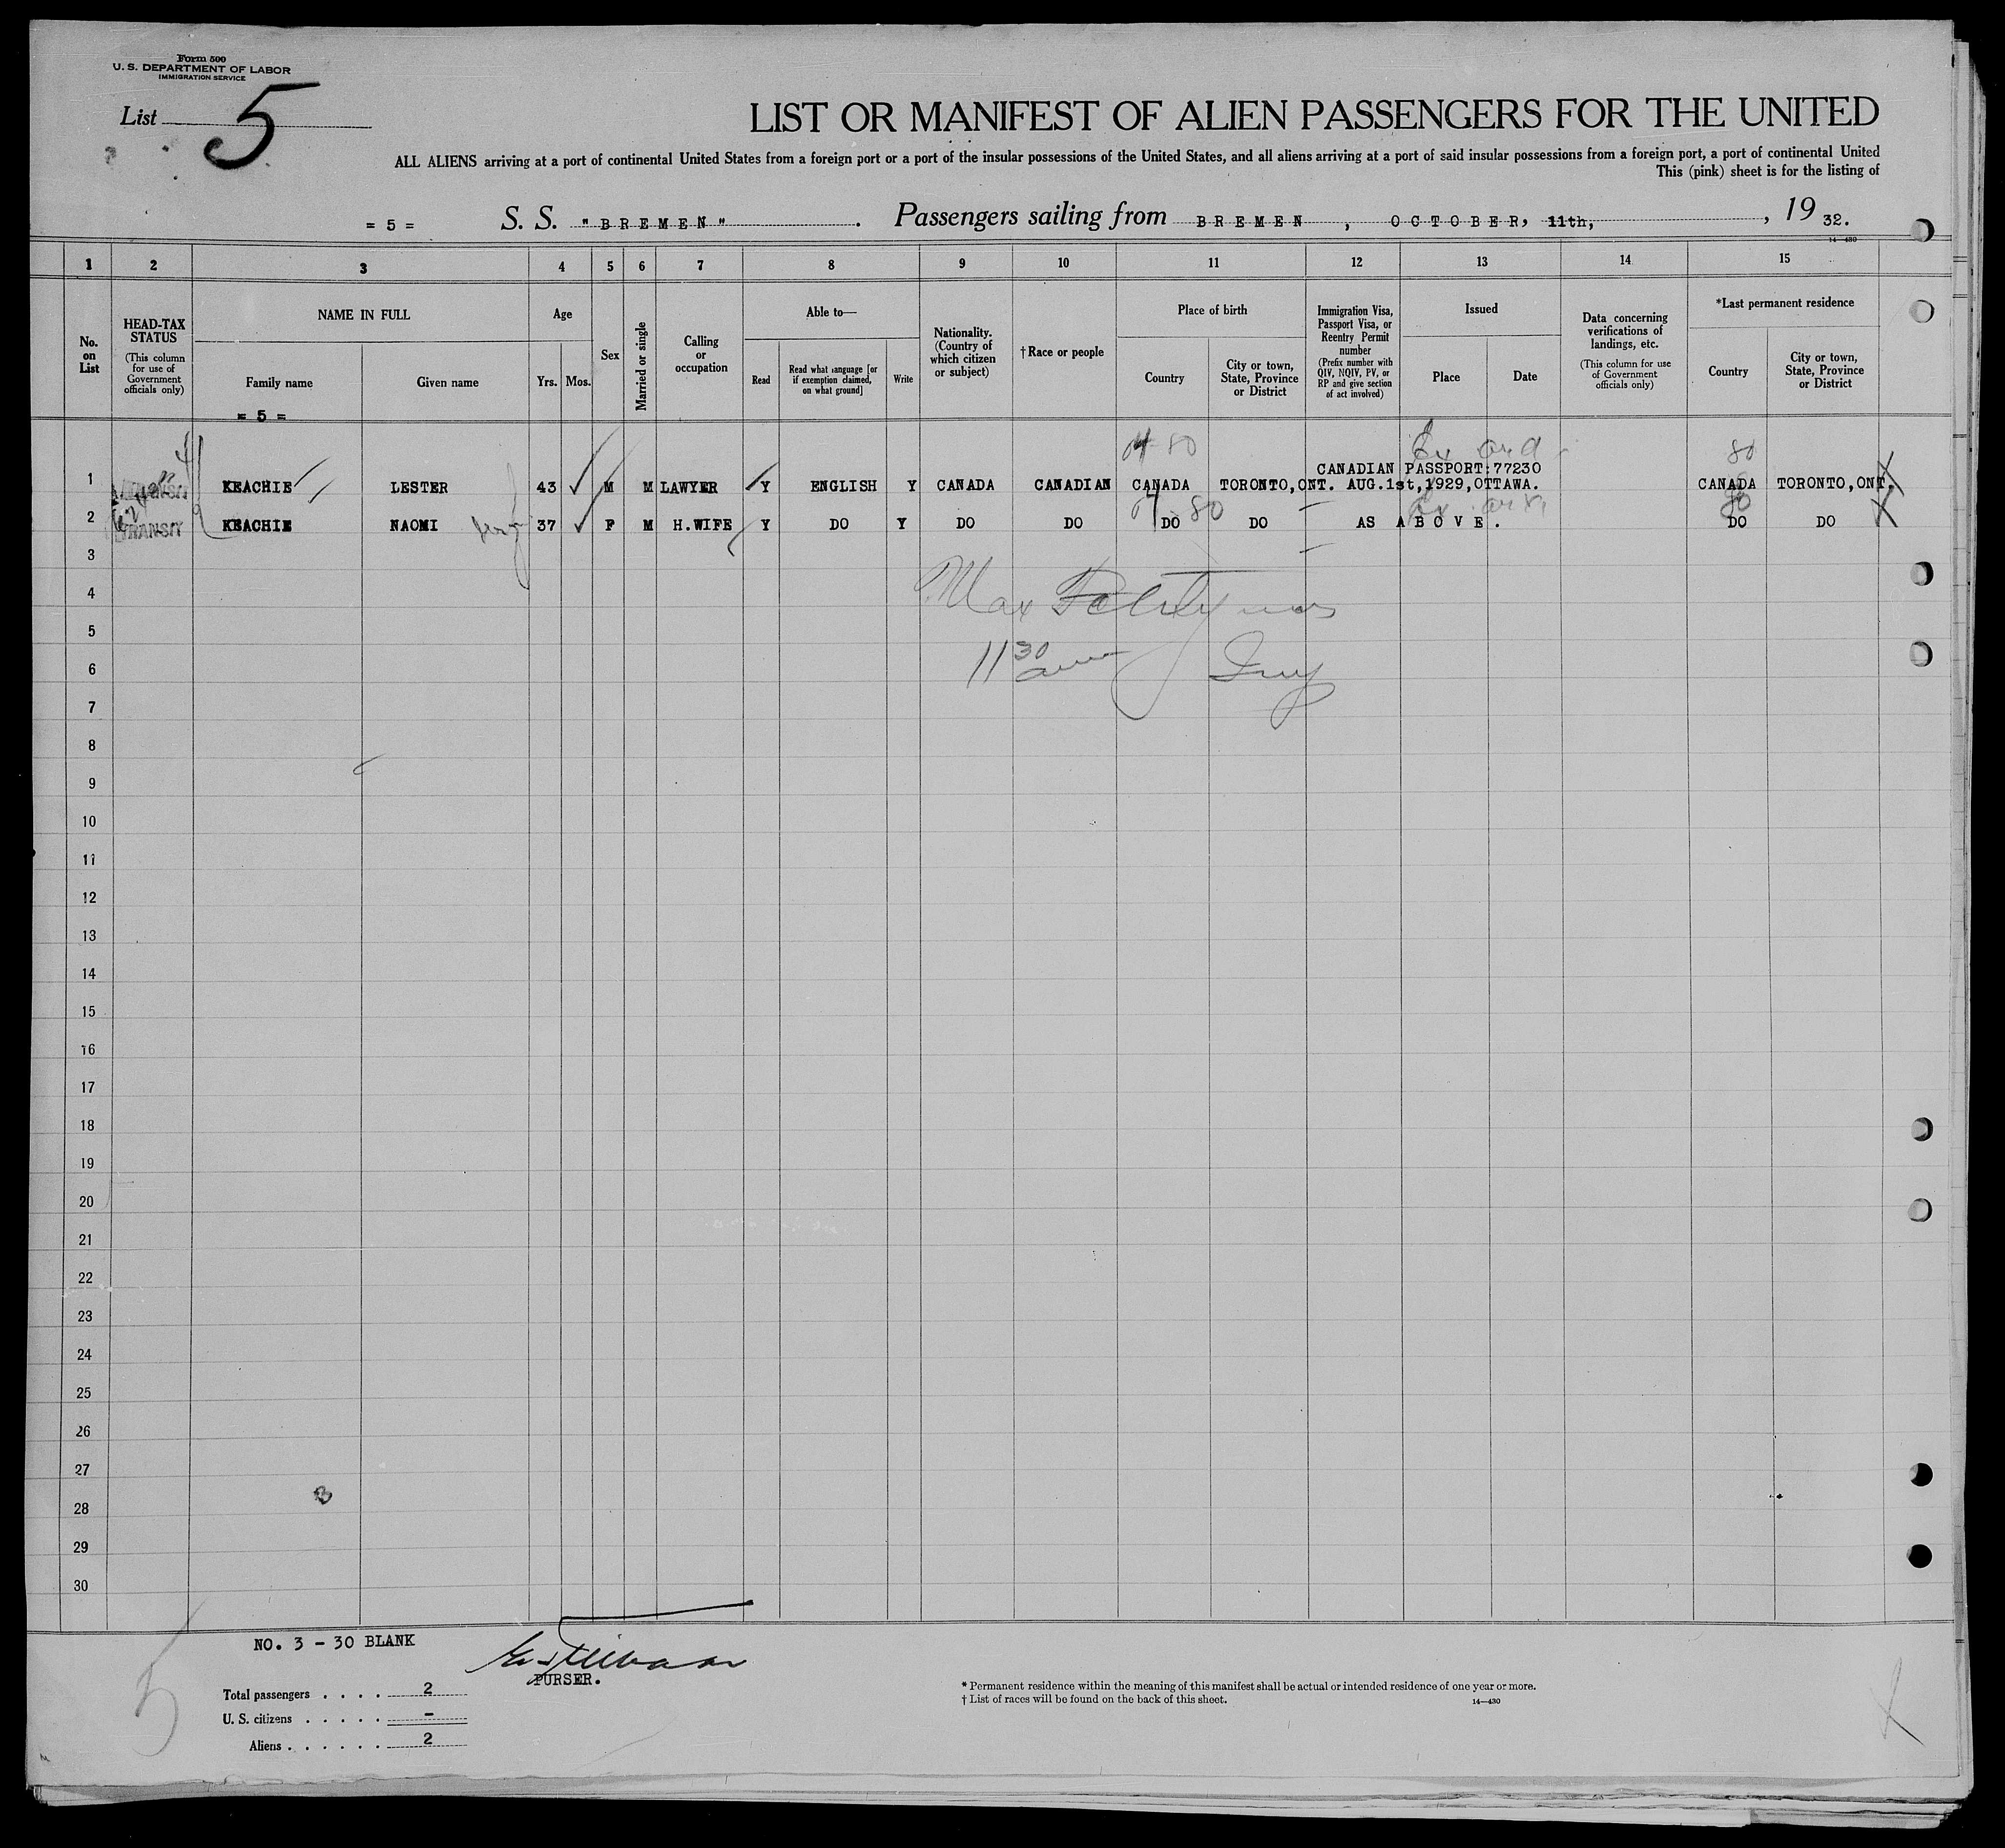 Form 500
U. S. DEPARTMENT OF LABOR
IMMIGRATION SERVICE
List 5
LIST OR MANIFEST OF ALIEN PASSENGERS FOR THE UNITED
ALL ALIENS arriving at a port of continental United States from a foreign port or a port of the insular possessions of the United States, and all aliens arriving at a port of said insular possessions from a foreign port, a port of continental United
This (pink) sheet is for the listing of
= 5 = S. S. "BREMEN". Passengers sailing from BREMEN, OCTOBER, 11th, , 19 32.
14—430
1 2 3 4 5 6 7 8 9 10 11 12 13 14 15
No. on List
HEAD-TAX STATUS
(This column for use of Government officials only)
NAME IN FULL
Family name
Given name
Age
Yrs. Mos.
Sex
Married or single
Calling or occupation
Able to—
Read
Read what language [or if exemption claimed, on what ground]
Write
Nationality. (Country of which citizen or subject)
† Race or people
Place of birth
Country
City or town, State, Province or District
Immigration Visa, Passport Visa, or Reentry Permit number
(Prefix number with QIV, NQIV, PV, or RP and give section of act involved)
Issued
Place
Date
Data concerning verifications of landings, etc.
(This column for use of Government officials only)
*Last permanent residence
Country
City or town, State, Province or District
= 5 =
80 80
CANADIAN PASSPORT:77230
1 KEACHIE LESTER 43 M M LAWYER Y ENGLISH Y CANADA CANADIAN CANADA TORONTO,ONT. AUG.1st,1929,OTTAWA. CANADA TORONTO,ONT.
80 80
2 TRANSIT KEACHIE NAOMI 37 F M H.WIFE Y DO Y DO DO DO DO AS ABOVE. DO DO
3
4 Max
5
6 11 30 am
7
8
9
10
11
12
13
14
15
16
17
18
19
20
21
22
23
24
25
26
27
28
29
30
NO. 3 - 30 BLANK
PURSER.
Total passengers . . . . 2
U. S. citizens . . . . . -
Aliens . . . . . . 2
5
* Permanent residence within the meaning of this manifest shall be actual or intended residence of one year or more.
† List of races will be found on the back of this sheet.
14—430